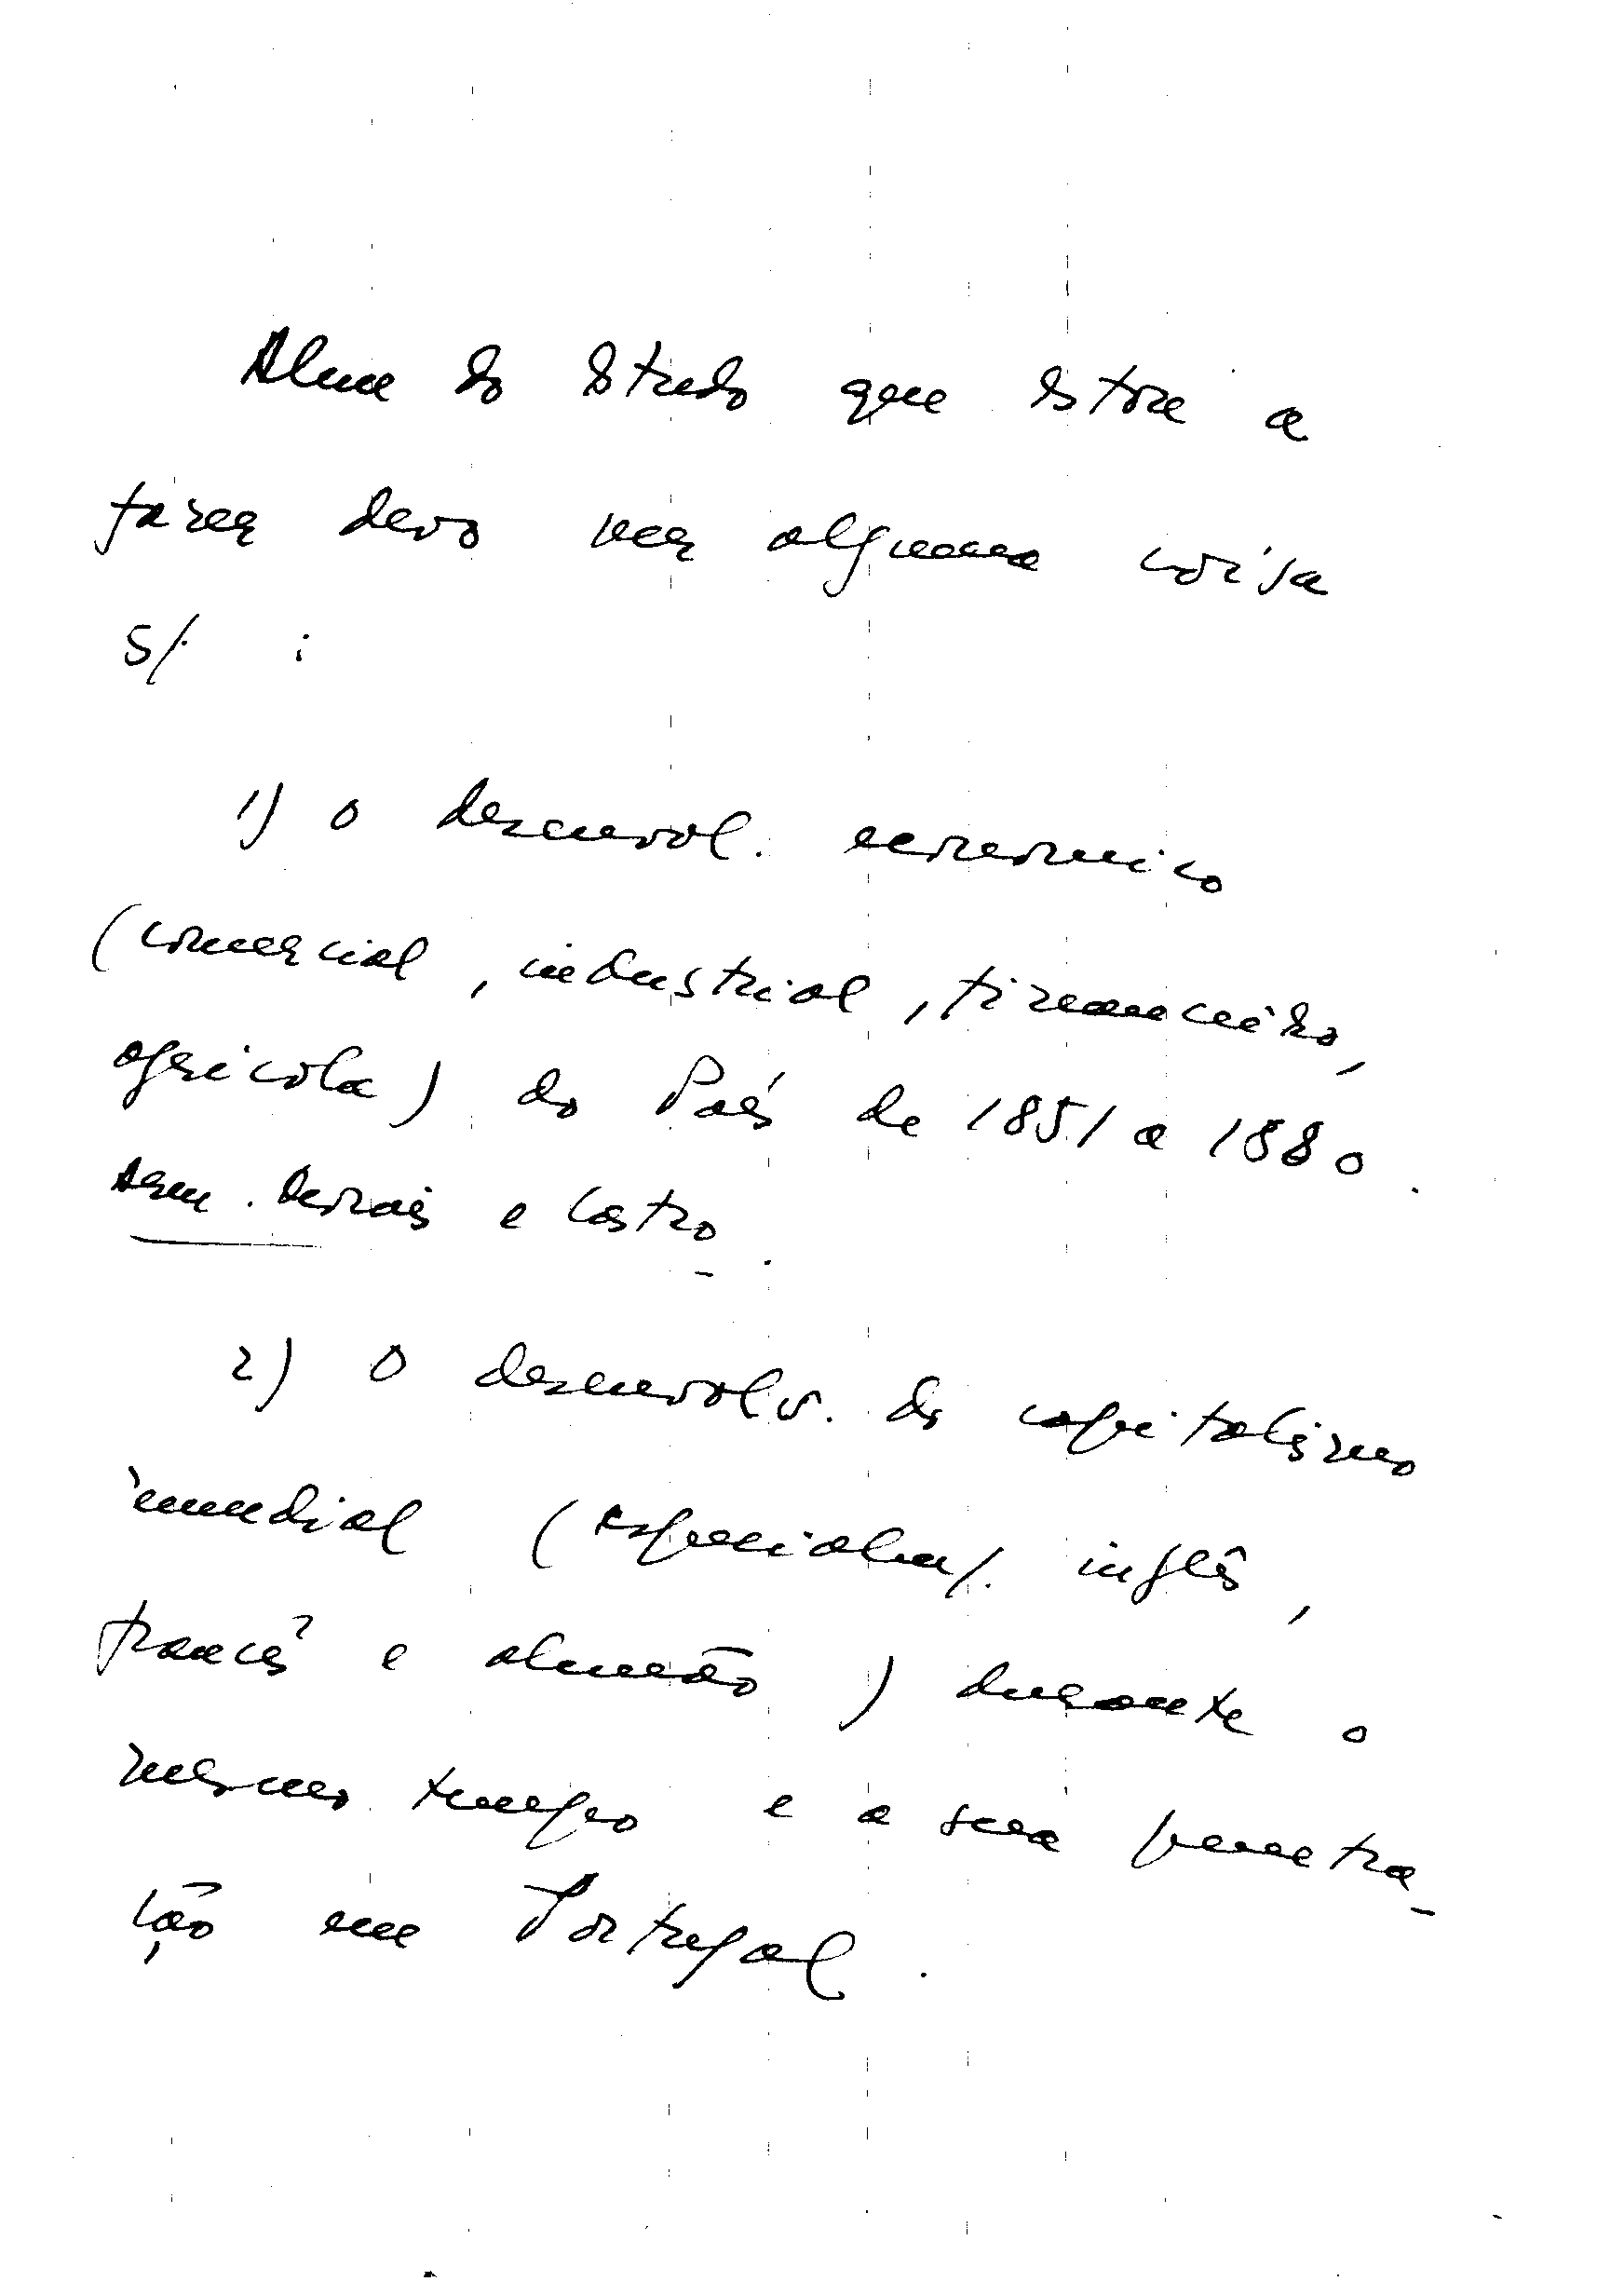 Além do Estudo que estou a
fazer devo ver alguma coisa
s/ :
1) O desenvol. económico
(comercial, industrial, financeiro,
agrícola) do País de 1851 a 1880.
Arm. e Castro.
2) O desenvolv. do capitalismo
mundial (especialm/. inglês,
francês e alemão) durante o
mesmo tempo e a sua penetra-
ção em Portugal.